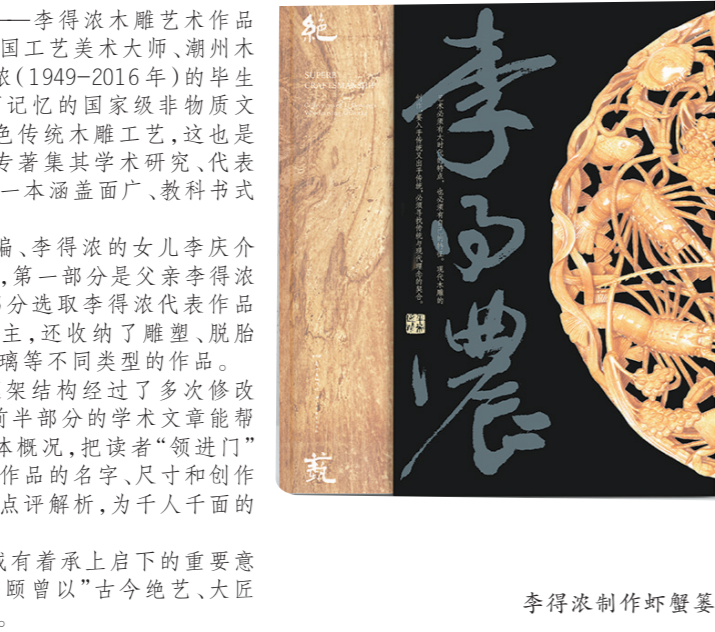 ——李得浓木雕艺术作品
国工艺美术大师、潮州木
浓(1949-2016年)的毕生
记忆的国家级非物质文
色传统木雕工艺,这也是
专著集其学术研究、代表
一本涵盖面广、教科书式
编、李得浓的女儿李庆介
,第一部分是父亲李得浓
部分选取李得浓代表作品
主,还收纳了雕塑、脱胎
璃等不同类型的作品。
架结构经过了多次修改
前半部分的学术文章能帮
体概况,把读者“领进门”
作品的名字、尺寸和创作
点评解析,为千人千面的
成有着承上启下的重要意
颐曾以”古今绝艺、大匠
。
絕
SUPERB
CRAFTSMANSHIP
藝
李得農
艺术必须有大时代的特点，也必须有
现代木雕的
要入乎传统又出乎传统，必须寻找传统与现代理念的契合。
李得浓制作虾蟹篓